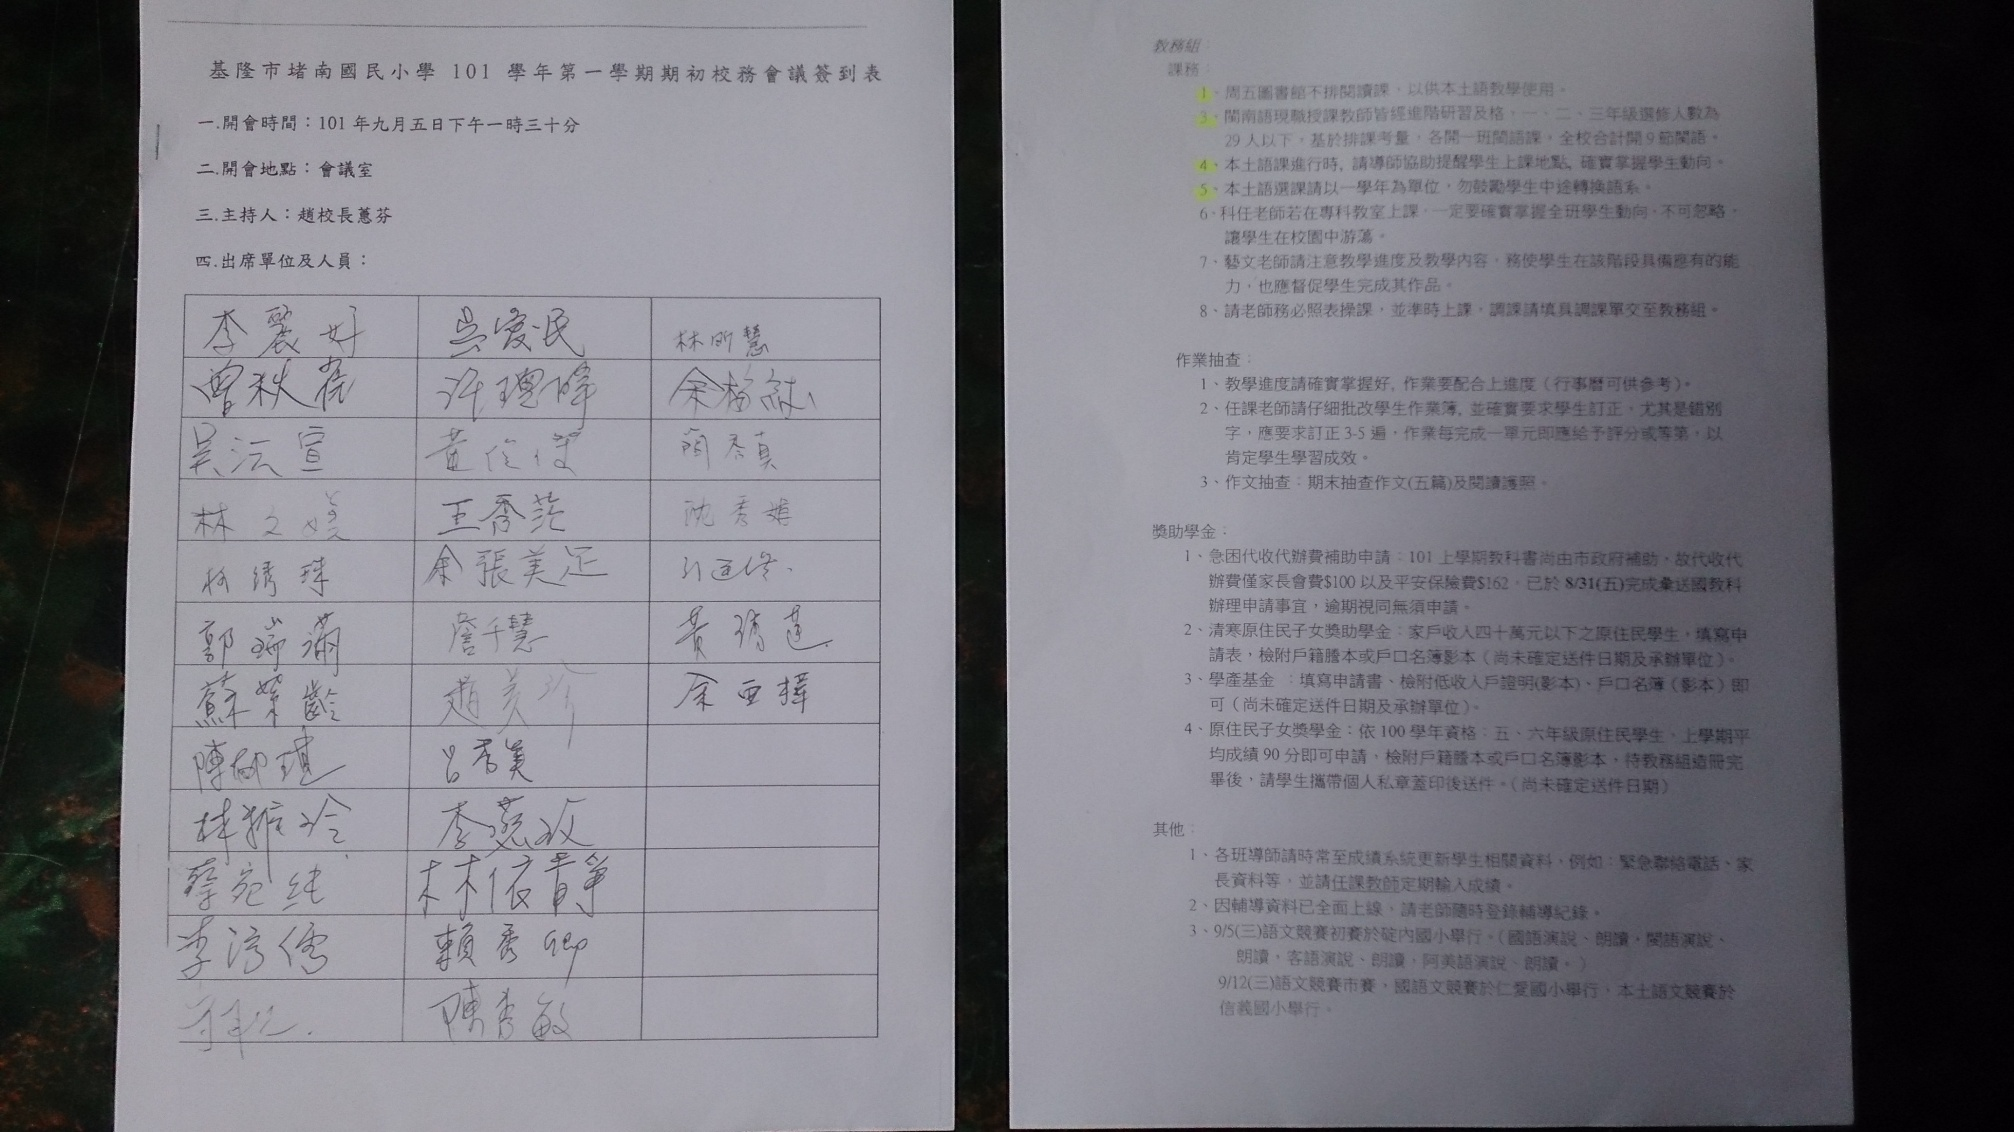 基隆市堵南國民小學 101 學年第一學期期初校務會議簽到表
一.開會時間：101 年九月五日下午一時三十分
二.開會地點：會議室
三.主持人：趙校長蕙芬
四.出席單位及人員：
李麗好
林昕慧
吳沅宣
林文
王秀
沈秀
林綉珠
余張美足
郭瑞滿
詹千慧
黃靖蓮
蘇 齡
趙美玲
陳郁琪
呂秀美
林雅玲
李蕙玫
蔡宛純
林依靜
李淳儒
賴秀卿
陳秀敏
教務組：
課務：
1、周五圖書館不排閱讀課，以供本土語教學使用。
3、閩南語現職授課教師皆經進階研習及格，一、二、三年級選修人數為
29 人以下，基於排課考量，各開一班閩語課，全校合計開 9 節閩語。
4、本土語課進行時, 請導師協助提醒學生上課地點, 確實掌握學生動向。
5、本土語選課請以一學年為單位，勿鼓勵學生中途轉換語系。
6、科任老師若在專科教室上課，一定要確實掌握全班學生動向，不可忽略，
讓學生在校園中游蕩。
7、藝文老師請注意教學進度及教學內容，務使學生在該階段具備應有的能
力，也應督促學生完成其作品。
8、請老師務必照表操課，並準時上課，調課請填具調課單交至教務組。
作業抽查：
1、教學進度請確實掌握好, 作業要配合上進度（行事曆可供參考）。
2、任課老師請仔細批改學生作業簿, 並確實要求學生訂正，尤其是錯別
字，應要求訂正 3-5 遍，作業每完成一單元即應給予評分或等第，以
肯定學生學習成效。
3、作文抽查：期末抽查作文(五篇)及閱讀護照。
獎助學金：
1、急困代收代辦費補助申請：101 上學期教科書尚由市政府補助，故代收代
辦費僅家長會費$100 以及平安保險費$162，已於 8/31(五)完成彙送國教科
辦理申請事宜，逾期視同無須申請。
2、清寒原住民子女獎助學金：家戶收入四十萬元以下之原住民學生，填寫申
請表，檢附戶籍謄本或戶口名簿影本（尚未確定送件日期及承辦單位）。
3、學產基金 ：填寫申請書、檢附低收入戶證明(影本)、戶口名簿（影本）即
可（尚未確定送件日期及承辦單位）。
4、原住民子女獎學金：依 100 學年資格：五、六年級原住民學生，上學期平
均成績 90 分即可申請，檢附戶籍謄本或戶口名簿影本，待教務組造冊完
畢後，請學生攜帶個人私章蓋印後送件。（尚未確定送件日期）
其他：
1、各班導師請時常至成績系統更新學生相關資料，例如：緊急聯絡電話、家
長資料等，並請任課教師定期輸入成績。
2、因輔導資料已全面上線，請老師隨時登錄輔導紀錄。
3、9/5(三)語文競賽初賽於碇內國小舉行。（國語演說、朗讀，閩語演說、
朗讀，客語演說、朗讀，阿美語演說、朗讀。）
9/12(三)語文競賽市賽，國語文競賽於仁愛國小舉行，本土語文競賽於
信義國小舉行。